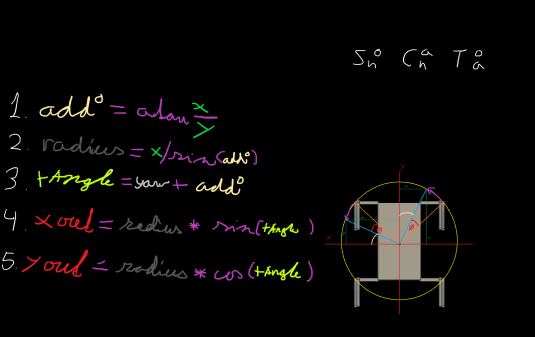 Sₕᵒ Cₕᵃ Tₐᵒ
1. add° = atan x/y
2. radius = x/sin(add°)
3. tAngle = yaw + add°
4. Xout = radius * sin(tAngle)
5. Yout = radius * cos(tAngle)